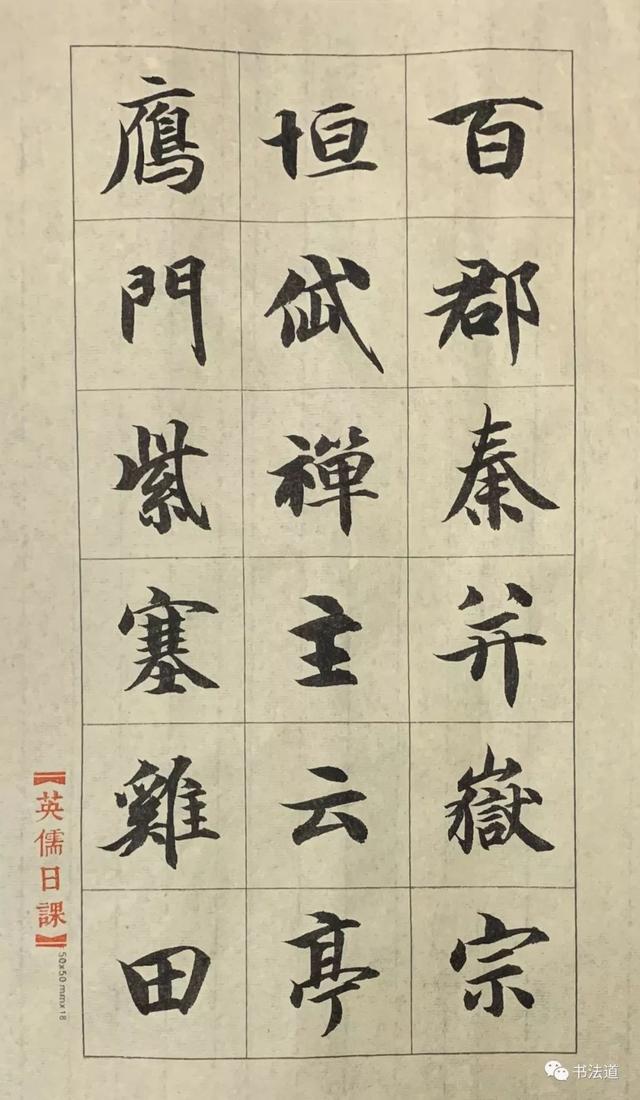 百郡秦并嶽宗
恒岱禪主云亭
鴈門紫塞雞田
【英儒日課】50x50mmx18
书法道